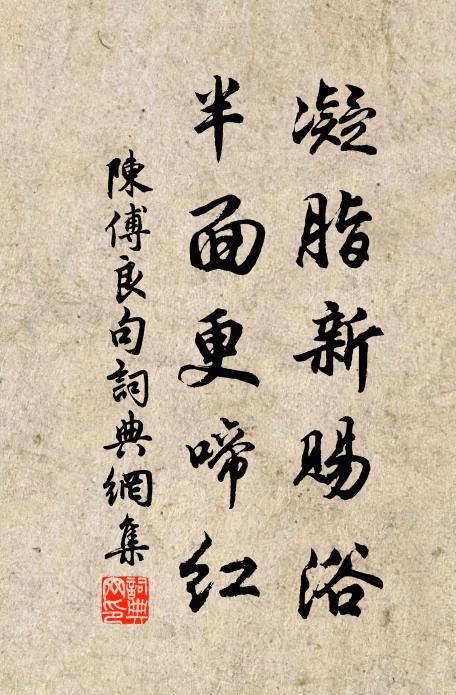 凝脂新賜浴
半面更啼紅
陳傅良句詞典網集
詞典網印